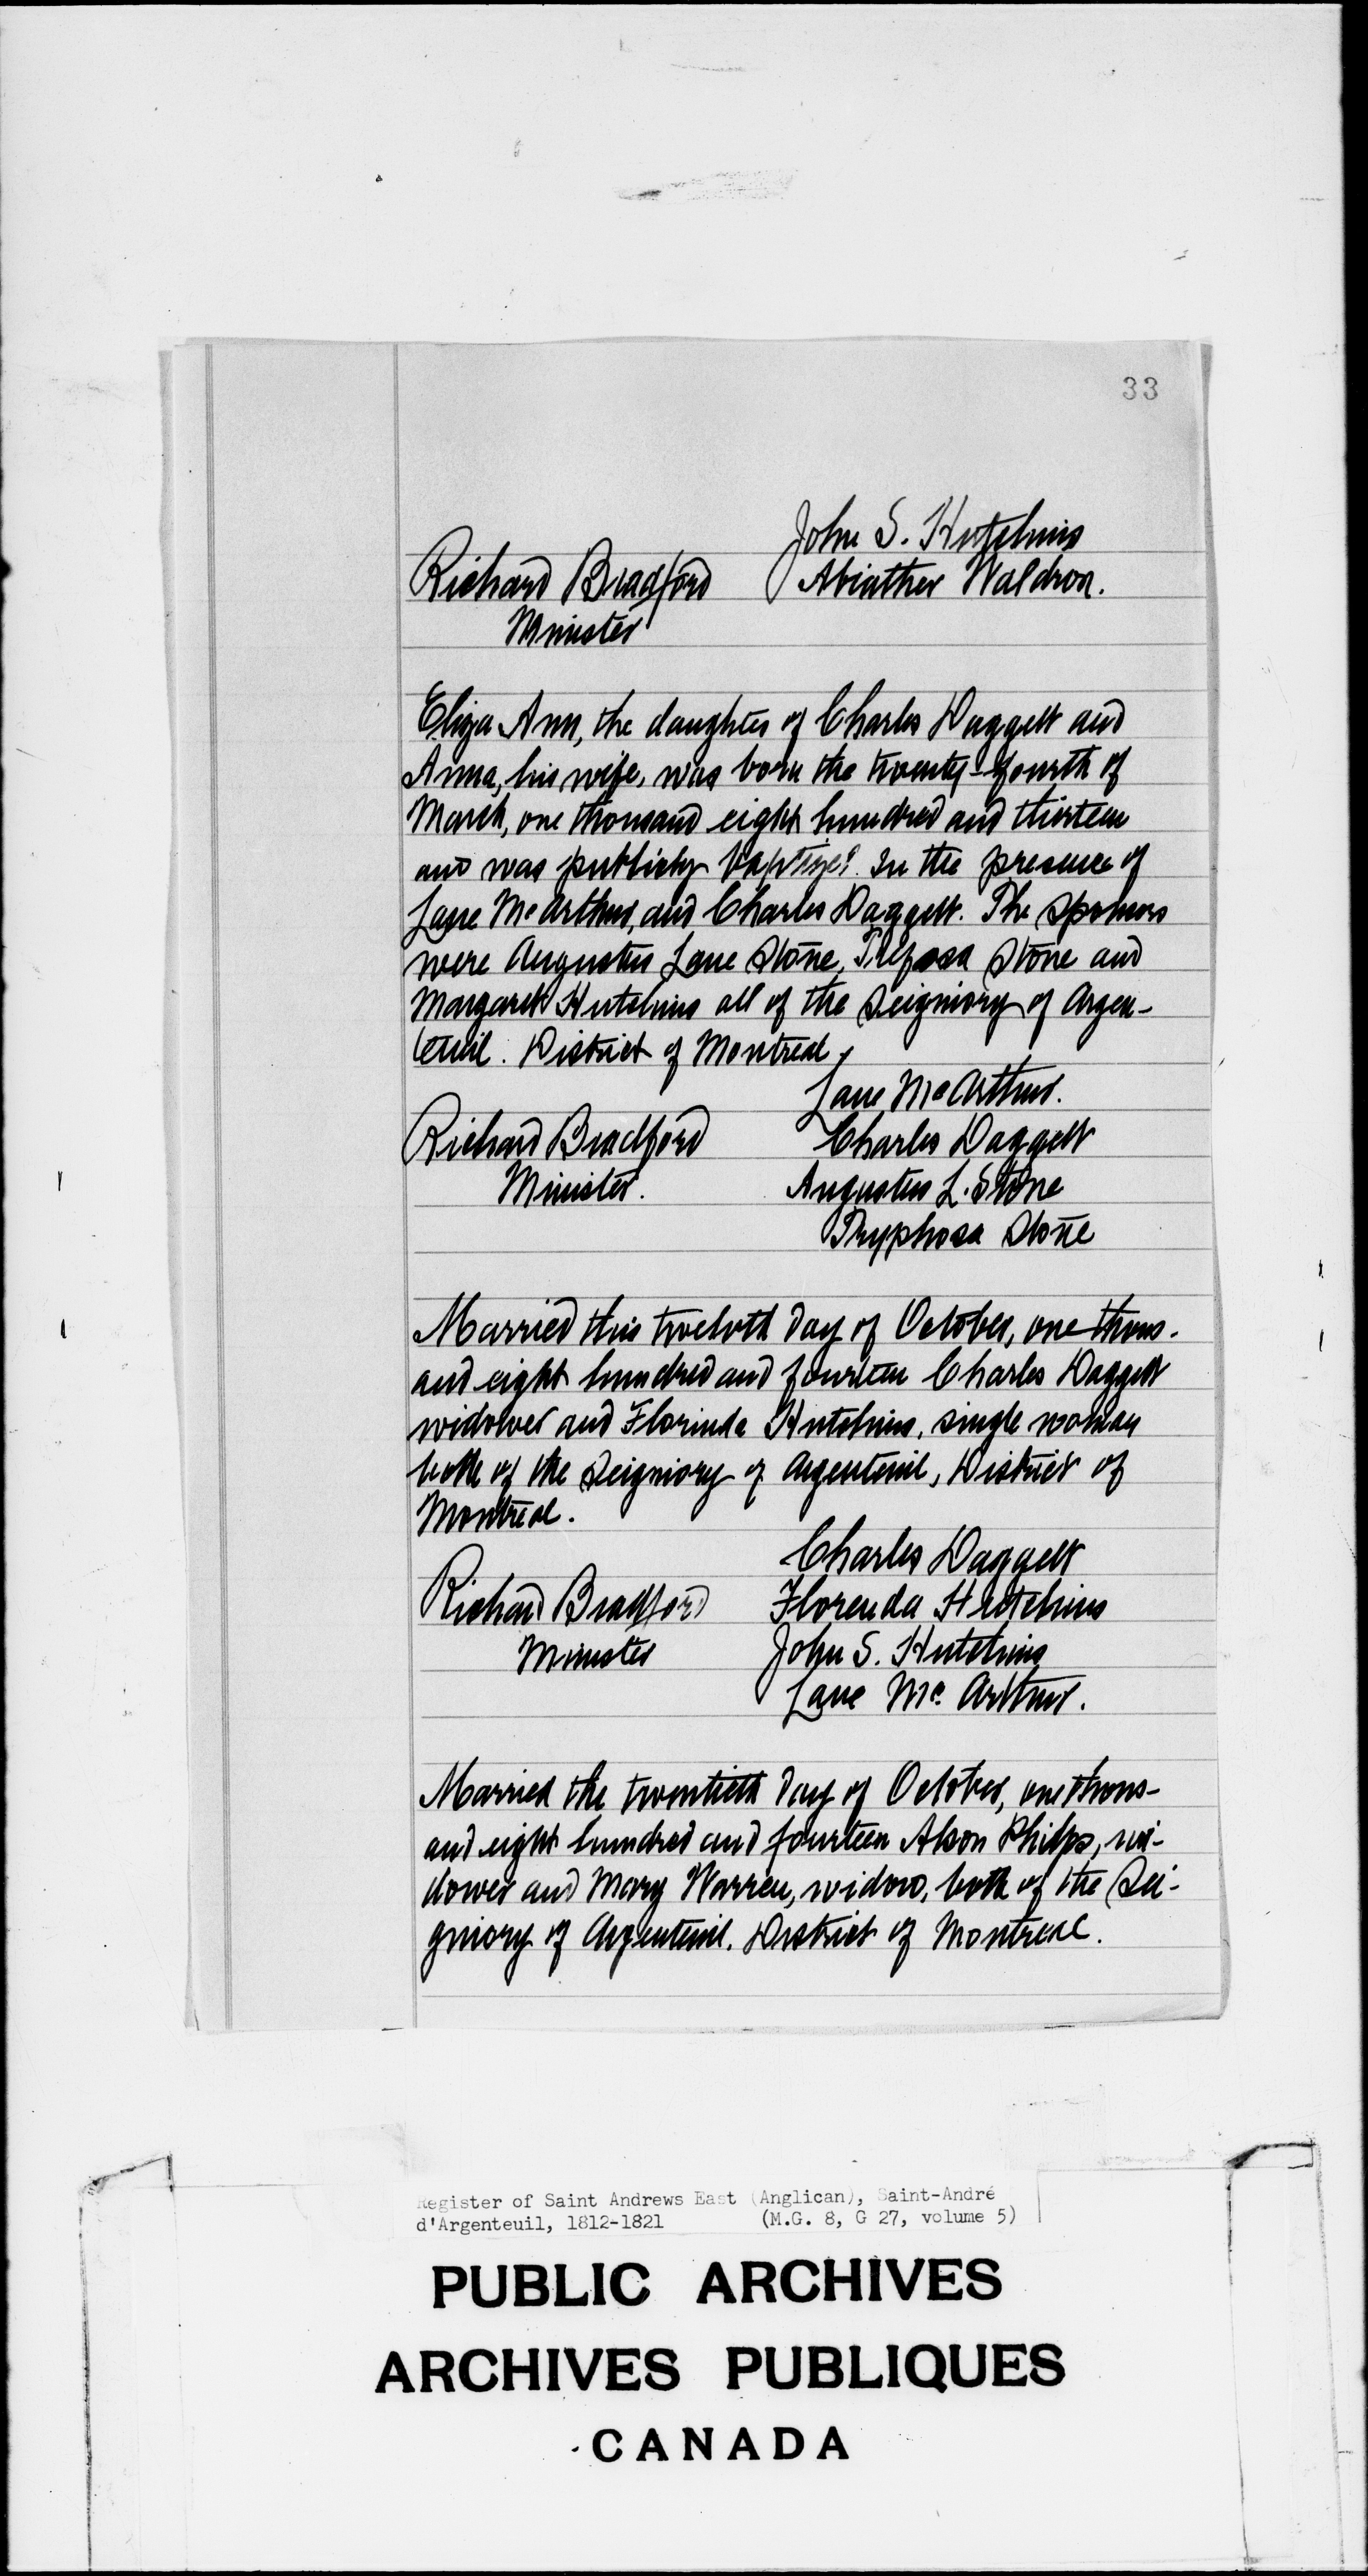 33
John S. Hutchins
Richard Bradford Abiather Waldron.
Minister
Eliza Ann, the daughter of Charles Daggett and
Anna, his wife, was born the twenty-fourth of
March, one thousand eight hundred and thirteen
and was publicly baptized. In the presence of
Lane McArthur, and Charles Daggett. The sponsors
were Augustus Lane Stone, Trifosa Stone and
Margarett Hutchins all of the Seigniory of Argen-
teuil. District of Montreal
Lane McArthur.
Richard Bradford Charles Daggett
Minister. Augustus L. Stone
Tryphosa Stone
Married this twelvth day of October, one thous-
and eight hundred and fourteen Charles Daggett
widower and Florinda Hutchins, single woman
both of the Seigniory of Argenteuil, District of
Montreal.
Charles Daggett
Richard Bradford Florenda Hutchins
Minister John S. Hutchins
Lane Mc. Arthur.
Married the twentieth day of October, one thous-
and eight hundred and fourteen Alson Philps, wi-
dower and Mary Warren, widow, both of the Sei-
gniory of Argenteuil. District of Montreal.
Register of Saint Andrews East (Anglican), Saint-André
d'Argenteuil, 1812-1821 (M.G. 8, G 27, volume 5)
PUBLIC ARCHIVES
ARCHIVES PUBLIQUES
CANADA